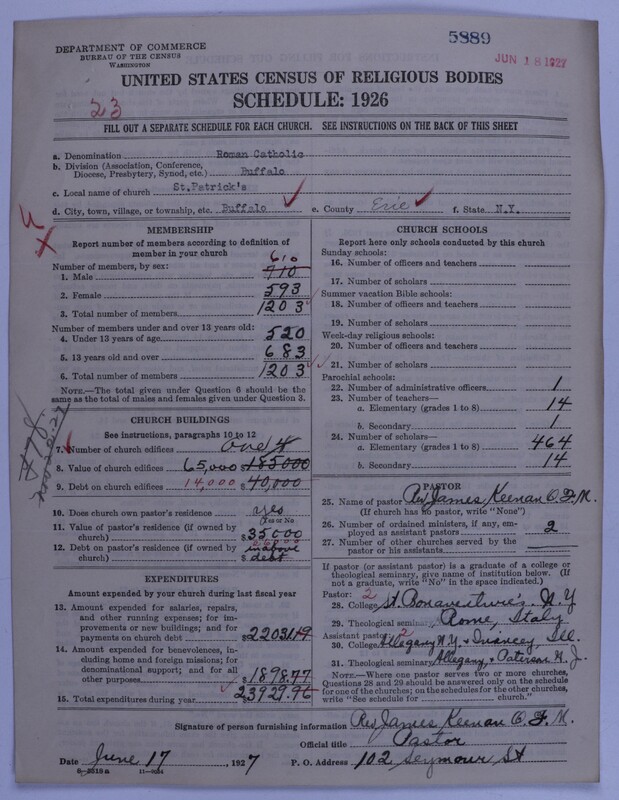 5889
JUN 18 1927
DEPARTMENT OF COMMERCE
BUREAU OF THE CENSUS
WASHINGTON
UNITED STATES CENSUS OF RELIGIOUS BODIES
SCHEDULE: 1926
23
FILL OUT A SEPARATE SCHEDULE FOR EACH CHURCH. SEE INSTRUCTIONS ON THE BACK OF THIS SHEET
a. Denomination Roman Catholic
b. Division (Association, Conference, Diocese, Presbytery, Synod, etc.) Buffalo
c. Local name of church St.Patrick's
d. City, town, village, or township, etc. Buffalo e. County Erie f. State N.Y.
MEMBERSHIP
Report number of members according to definition of member in your church
Number of members, by sex:
610
1. Male 710
2. Female 593
3. Total number of members 1203
Number of members under and over 13 years old:
4. Under 13 years of age 520
5. 13 years old and over 683
6. Total number of members 1203
NOTE.—The total given under Question 6 should be the same as the total of males and females given under Question 3.
CHURCH BUILDINGS
See instructions, paragraphs 10 to 12
7. Number of church edifices one 4
8. Value of church edifices 65,000 185000
9. Debt on church edifices 14,000 $ 40,000
10. Does church own pastor's residence yes
(Yes or No)
11. Value of pastor's residence (if owned by church) $ 35000
26000
12. Debt on pastor's residence (if owned by church) $ in above debt
EXPENDITURES
Amount expended by your church during last fiscal year
13. Amount expended for salaries, repairs, and other running expense; for improvements or new buildings; and for payments on church debt $ 22031.19
14. Amount expended for benevolences, including home and foreign missions; for denominational support; and for all other purposes $ 1898.77
15. Total expenditures during year $ 23929.96
CHURCH SCHOOLS
Report here only schools conducted by this church
Sunday schools:
16. Number of officers and teachers
17. Number of scholars
Summer vacation Bible schools:
18. Number of officers and teachers
19. Number of scholars
Week-day religious schools:
20. Number of officers and teachers
21. Number of scholars
Parochial schools:
22. Number of administrative officers 1
23. Number of teachers—
a. Elementary (grades 1 to 8) 14
b. Secondary 1
24. Number of scholars—
a. Elementary (grades 1 to 8) 464
b. Secondary 14
PASTOR
25. Name of pastor Rev James Keenan O.F.M.
(If church has no pastor, write "None")
26. Number of ordained ministers, if any, employed as assistant pastors 2
27. Number of other churches served by the pastor or his assistants
If pastor (or assistant pastor) is a graduate of a college or theological seminary, give name of institution below. (If not a graduate, write "No" in the space indicated.)
Pastor: 2
28. College St. Bonaventure's N.Y
29. Theological seminary Rome, Italy
Assistant pastor: 2
30. College Allegany N.Y. & Quincey, Ill.
31. Theological seminary Allegany, & Paterson N.J.
NOTE.—Where one pastor serves two or more churches, Questions 28 and 29 should be answered only on the schedule for one of the churches; on the schedules for the other churches, write "See schedule for church."
Signature of person furnishing information Rev James Keenan O.F.M.
Official title Pastor
Date June 17, 1927 P. O. Address 102 Seymour St